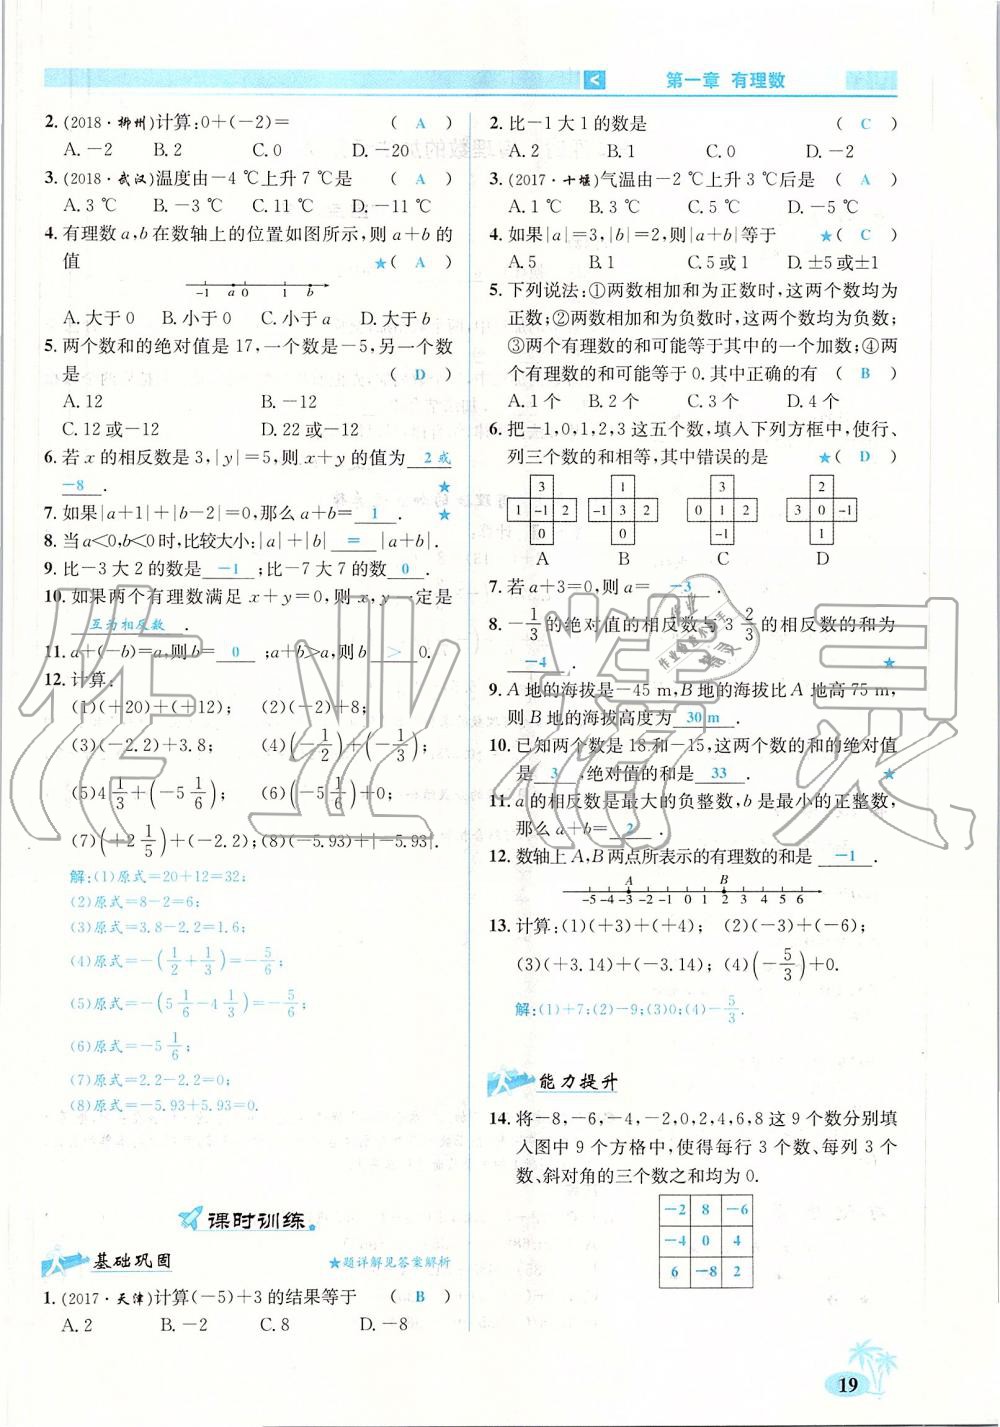 第一章 有理数
2.(2018·柳州)计算:0+(-2)= ( A )
A.-2 B.2 C.0 D.-20
3.(2018·武汉)温度由-4 ℃上升7 ℃是 ( A )
A.3 ℃ B.-3 ℃ C.11 ℃ D.-11 ℃
4.有理数a,b在数轴上的位置如图所示,则a+b的
值 ★( A )
-1 a 0 1 b
A.大于0 B.小于0 C.小于a D.大于b
5.两个数和的绝对值是17,一个数是-5,另一个数
是 ( D )
A.12 B.-12
C.12或-12 D.22或-12
6.若x的相反数是3,|y|=5,则x+y的值为 2或
-8 . ★
7.如果|a+1|+|b-2|=0,那么a+b= 1 . ★
8.当a<0,b<0时,比较大小:|a|+|b| = |a+b|.
9.比-3大2的数是 -1 ;比-7大7的数 0 .
10.如果两个有理数满足x+y=0,则x,y一定是
互为相反数 .
11.a+(-b)=a,则b= 0 ;a+b>a,则b > 0.
12.计算:
(1)(+20)+(+12); (2)(-2)+8;
(3)(-2.2)+3.8; (4)(-1/2)+(-1/3);
(5)4 1/3+(-5 1/6); (6)(-5 1/6)+0;
(7)(+2 1/5)+(-2.2); (8)(-5.93)+|-5.93|.
解:(1)原式=20+12=32;
(2)原式=8-2=6;
(3)原式=3.8-2.2=1.6;
(4)原式=-(1/2+1/3)=-5/6;
(5)原式=-(5 1/6-4 1/3)=-5/6;
(6)原式=-5 1/6;
(7)原式=2.2-2.2=0;
(8)原式=-5.93+5.93=0.
课时训练
基础巩固 ★题详解见答案解析
1.(2017·天津)计算(-5)+3的结果等于 ( B )
A.2 B.-2 C.8 D.-8
2.比-1大1的数是 ( C )
A.2 B.1 C.0 D.-2
3.(2017·十堰)气温由-2 ℃上升3 ℃后是 ( A )
A.1 ℃ B.3 ℃ C.5 ℃ D.-5 ℃
4.如果|a|=3,|b|=2,则|a+b|等于 ★( C )
A.5 B.1 C.5或1 D.±5或±1
5.下列说法:①两数相加和为正数时,这两个数均为
正数;②两数相加和为负数时,这两个数均为负数;
③两个有理数的和可能等于其中的一个加数;④两
个有理数的和可能等于0.其中正确的有 ( B )
A.1个 B.2个 C.3个 D.4个
6.把-1,0,1,2,3这五个数,填入下列方框中,使行、
列三个数的和相等,其中错误的是 ★( D )
3 1 -1 2
1 -1 2 -1 3 2 0 1 2 3 0 -1
0 0 -1 1
A B C D
7.若a+3=0,则a= -3 .
8.-1/3的绝对值的相反数与3 2/3的相反数的和为
-4 . ★
9.A地的海拔是-45 m,B地的海拔比A地高75 m,
则B地的海拔高度为 30 m .
10.已知两个数是18和-15,这两个数的和的绝对值
是 3 ,绝对值的和是 33 .
11.a的相反数是最大的负整数,b是最小的正整数,
那么a+b= 2 .
12.数轴上A,B两点所表示的有理数的和是 -1 .
A B
-5 -4 -3 -2 -1 0 1 2 3 4 5 6
13.计算:(1)(+3)+(+4); (2)(-3)+(-6);
(3)(+3.14)+(-3.14); (4)(-5/3)+0.
解:(1)+7;(2)-9;(3)0;(4)-5/3.
能力提升
14.将-8,-6,-4,-2,0,2,4,6,8这9个数分别填
入图中9个方格中,使得每行3个数、每列3个
数、斜对角的三个数之和均为0.
-2 8 -6
-4 0 4
6 -8 2
19
作业精灵